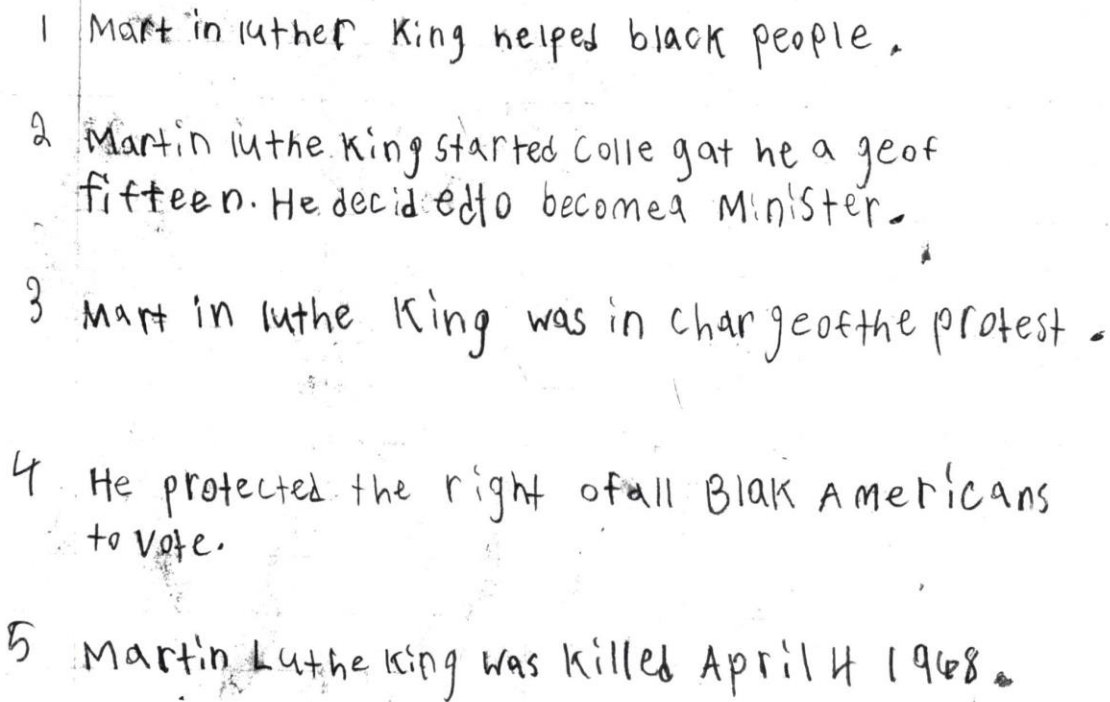 1 Mart in luther King helped black people.
2 Martin luthe King started Colle gat he a geof
fifteen. He decid edto becomea Minister.
3 Mart in luthe King was in char geofthe protest.
4 He protected the right ofall Blak Americans
to vote.
5 Martin Luthe King was killed April 4 1968.